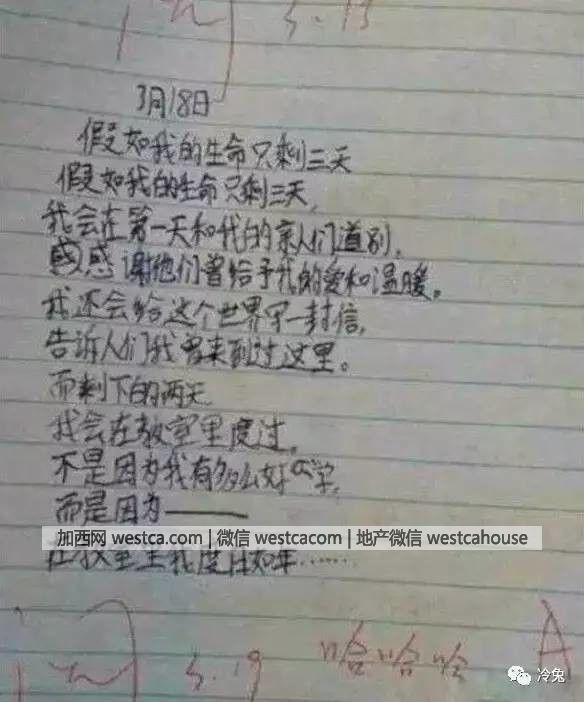 3月18日
假如我的生命只剩三天
假如我的生命只剩三天,
我会在第一天和我的亲人们道别,
感感谢他们曾给予我的爱和温暖。
我还会给这个世界写一封信,
告诉人们我曾来到过这里。
而剩下的两天
我会在教室里度过,
不是因为我有多么好学,
而是因为———
加西网 westca.com | 微信 westcacom | 地产微信 westcahouse
在教室里我度日如年……
3.19 哈哈哈 A
冷兔